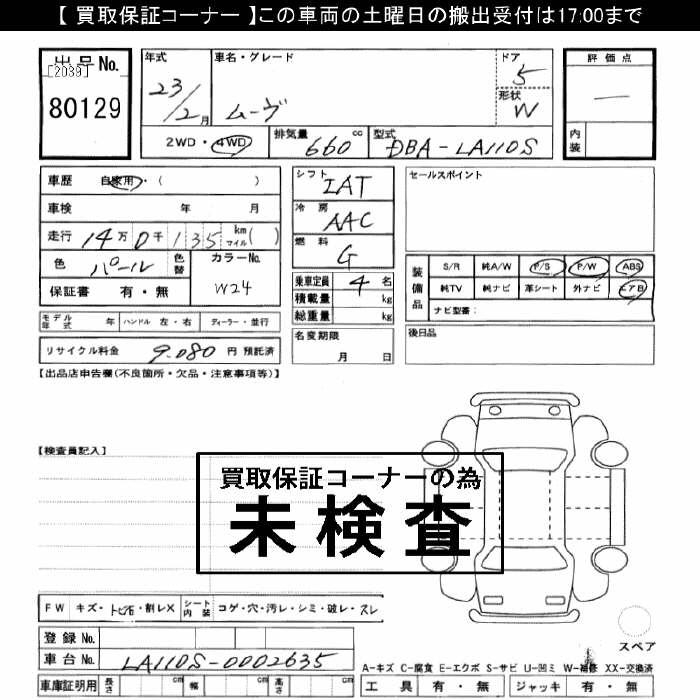 【 買取保証コーナー 】この車両の土曜日の搬出受付は17:00まで
出品No.
[2039]
80129
年式
23/2月
車名・グレード
ムーヴ
ドア
5
形状
W
評価点
—
内装
2WD・4WD
排気量
660 cc
型式
DBA-LA110S
車歴 自家用・( )
車検 年 月
走行 14万0千135 km マイル( )
色 パール 色替
カラーNo.
W24
保証書 有・無
モデル年式 年 ハンドル 左・右 ディーラー・並行
リサイクル料金 9,080 円 預託済
シフト
IAT
冷房
AAC
燃料
G
乗車定員 4 名
積載量 kg
総重量 kg
名変期限
月 日
セールスポイント
装備品
S/R 純A/W P/S P/W ABS
純TV 純ナビ 革シート 外ナビ エアB
ナビ型番:
後日品
【出品店申告欄(不良箇所・欠品・注意事項等)】
【検査員記入】
買取保証コーナーの為
未検査
FW キズ・トビ石・割レX シート内装 コゲ・穴・汚レ・シミ・破レ・スレ
登録No.
車台No. LA110S-0002635
車庫証明用 長さ cm 幅 cm 高さ cm
スペア
A-キズ C-腐食 E-エクボ S-サビ U-凹ミ W-補修 XX-交換済
工具 有・無 ジャッキ 有・無